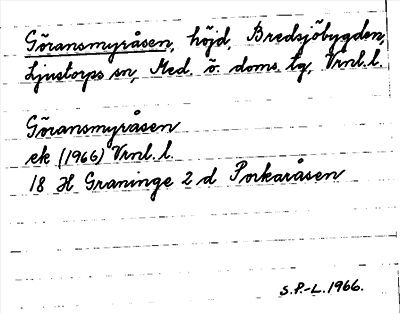 Göransmyråsen, höjd, Bredsjöbygden,
Ljustorps sn, Med. ö. doms. tg, Vrnl. l.
Göransmyråsen
ek (1966) Vrnl. l.
18 H Graninge 2 d Porkaråsen
S.P.-L. 1966.